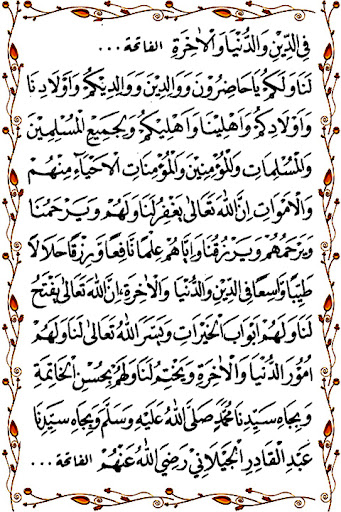 فِى الدِّيْنِ وَالدُّنْيَا وَالْاٰخِرَةِ الفاتحة...
لَنَا وَلَكُمْ يَا حَاضِرُوْنَ وَوَالِدِيْنَ وَوَالِدِيْكُمْ وَاَوْلَادِنَا
وَاَوْلَادِكُمْ وَاَهْلِيْنَا وَاَهْلِيْكُمْ وَلِجَمِيْعِ الْمُسْلِمِيْنَ
وَالْمُسْلِمَاتِ وَالْمُؤْمِنِيْنَ وَالْمُؤْمِنَاتِ الْاَحْيَآءِ مِنْهُمْ
وَالْاَمْوَاتِ اِنَّ اللهَ تَعَالٰى يَغْفِرُ لَنَا وَلَهُمْ وَيَرْحَمُنَا
وَيَرْحَمُهُمْ وَيَرْزُقُنَا وَاِيَّاهُمْ عِلْمًا نَافِعًا وَرِزْقًا حَلَالًا
طَيِّبًا وَاسِعًا فِى الدِّيْنِ وَالدُّنْيَا وَالْاٰخِرَةِ، اِنَّ اللهَ تَعَالٰى يَفْتَحُ
لَنَا وَلَهُمْ اَبْوَابَ الْخَيْرَاتِ وَيَسَّرَ اللهُ تَعَالٰى لَنَا وَلَهُمْ
اُمُوْرَ الدُّنْيَا وَالْاٰخِرَةِ وَيَخْتِمُ لَنَا وَلَهُمْ بِحُسْنِ الْخَاتِمَةِ
وَبِجَاهِ سَيِّدِنَا مُحَمَّدٍ صَلَّى اللهُ عَلَيْهِ وَسَلَّمَ وَبِجَاهِ سَيِّدِنَا
عَبْدِ الْقَادِرِ الْجَيْلَانِيْ رَضِيَ اللهُ عَنْهُمْ الفاتحة...